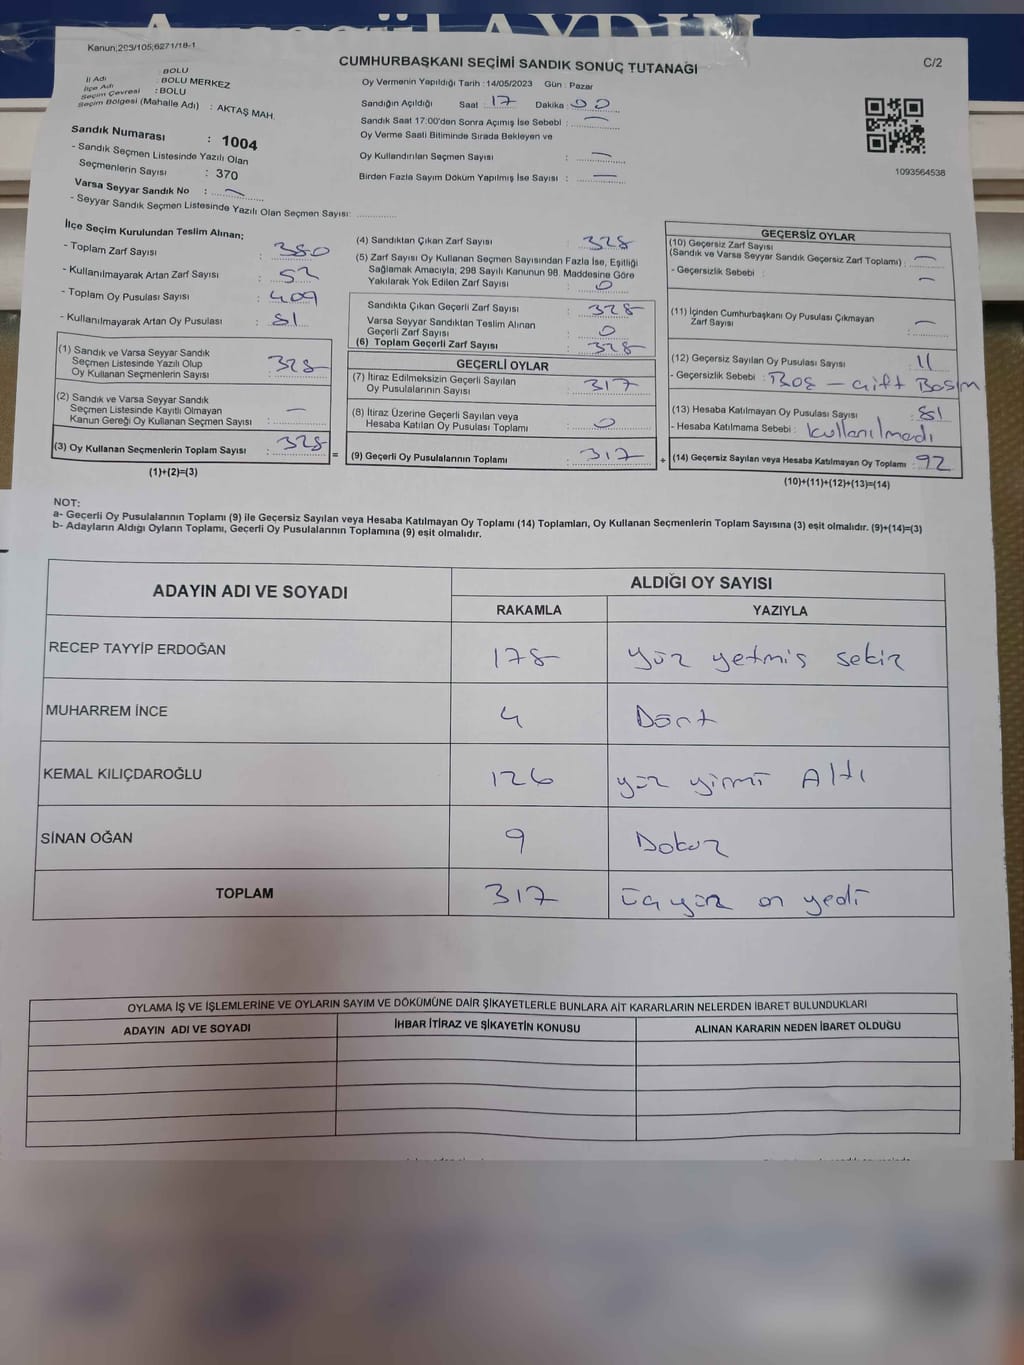 Ayşegül AYDIN
Kanun;293/105;6271/18-1
CUMHURBAŞKANI SEÇİMİ SANDIK SONUÇ TUTANAĞI
C/2
İl Adı : BOLU
İlçe Adı : BOLU MERKEZ
Seçim Çevresi : BOLU
Seçim Bölgesi (Mahalle Adı) : AKTAŞ MAH.
Oy Vermenin Yapıldığı Tarih : 14/05/2023 Gün : Pazar
Sandığın Açıldığı Saat 17 Dakika : 00
Sandık Saat 17:00'den Sonra Açımış İse Sebebi : —
Oy Verme Saati Bitiminde Sırada Bekleyen ve
Oy Kullandırılan Seçmen Sayısı : —
Birden Fazla Sayım Döküm Yapılmış İse Sayısı : —
1093564538
Sandık Numarası : 1004
- Sandık Seçmen Listesinde Yazılı Olan
Seçmenlerin Sayısı : 370
Varsa Seyyar Sandık No : —
- Seyyar Sandık Seçmen Listesinde Yazılı Olan Seçmen Sayısı: ............
İlçe Seçim Kurulundan Teslim Alınan;
- Toplam Zarf Sayısı : 380
- Kullanılmayarak Artan Zarf Sayısı : 52
- Toplam Oy Pusulası Sayısı : 409
- Kullanılmayarak Artan Oy Pusulası : 81
(1) Sandık ve Varsa Seyyar Sandık
Seçmen Listesinde Yazılı Olup
Oy Kullanan Seçmenlerin Sayısı : 328
(2) Sandık ve Varsa Seyyar Sandık
Seçmen Listesinde Kayıtlı Olmayan
Kanun Gereği Oy Kullanan Seçmen Sayısı : —
(3) Oy Kullanan Seçmenlerin Toplam Sayısı : 328
(1)+(2)=(3)
=
(4) Sandıktan Çıkan Zarf Sayısı : 328
(5) Zarf Sayısı Oy Kullanan Seçmen Sayısından Fazla İse, Eşitliği
Sağlamak Amacıyla; 298 Sayılı Kanunun 98. Maddesine Göre
Yakılarak Yok Edilen Zarf Sayısı : 0
Sandıkta Çıkan Geçerli Zarf Sayısı : 328
Varsa Seyyar Sandıktan Teslim Alınan
Geçerli Zarf Sayısı : 0
(6) Toplam Geçerli Zarf Sayısı : 328
GEÇERLİ OYLAR
(7) İtiraz Edilmeksizin Geçerli Sayılan
Oy Pusulalarının Sayısı : 317
(8) İtiraz Üzerine Geçerli Sayılan veya
Hesaba Katılan Oy Pusulası Toplamı : 0
(9) Geçerli Oy Pusulalarının Toplamı : 317
+
GEÇERSİZ OYLAR
(10) Geçersiz Zarf Sayısı
(Sandık ve Varsa Seyyar Sandık Geçersiz Zarf Toplamı) : —
- Geçersizlik Sebebi : —
(11) İçinden Cumhurbaşkanı Oy Pusulası Çıkmayan
Zarf Sayısı : —
(12) Geçersiz Sayılan Oy Pusulası Sayısı : 11
- Geçersizlik Sebebi : Boş - çift Basım
(13) Hesaba Katılmayan Oy Pusulası Sayısı : 81
- Hesaba Katılmama Sebebi : kullanılmadı
(14) Geçersiz Sayılan veya Hesaba Katılmayan Oy Toplamı : 92
(10)+(11)+(12)+(13)=(14)
NOT:
a- Geçerli Oy Pusulalarının Toplamı (9) ile Geçersiz Sayılan veya Hesaba Katılmayan Oy Toplamı (14) Toplamları, Oy Kullanan Seçmenlerin Toplam Sayısına (3) eşit olmalıdır. (9)+(14)=(3)
b- Adayların Aldığı Oyların Toplamı, Geçerli Oy Pusulalarının Toplamına (9) eşit olmalıdır.
ADAYIN ADI VE SOYADI ALDIĞI OY SAYISI
RAKAMLA YAZIYLA
RECEP TAYYİP ERDOĞAN 178 yüz yetmiş sekiz
MUHARREM İNCE 4 Dört
KEMAL KILIÇDAROĞLU 126 yüz yirmi Altı
SİNAN OĞAN 9 Dokuz
TOPLAM 317 üçyüz on yedi
OYLAMA İŞ VE İŞLEMLERİNE VE OYLARIN SAYIM VE DÖKÜMÜNE DAİR ŞİKAYETLERLE BUNLARA AİT KARARLARIN NELERDEN İBARET BULUNDUKLARI
ADAYIN ADI VE SOYADI İHBAR İTİRAZ VE ŞİKAYETİN KONUSU ALINAN KARARIN NEDEN İBARET OLDUĞU